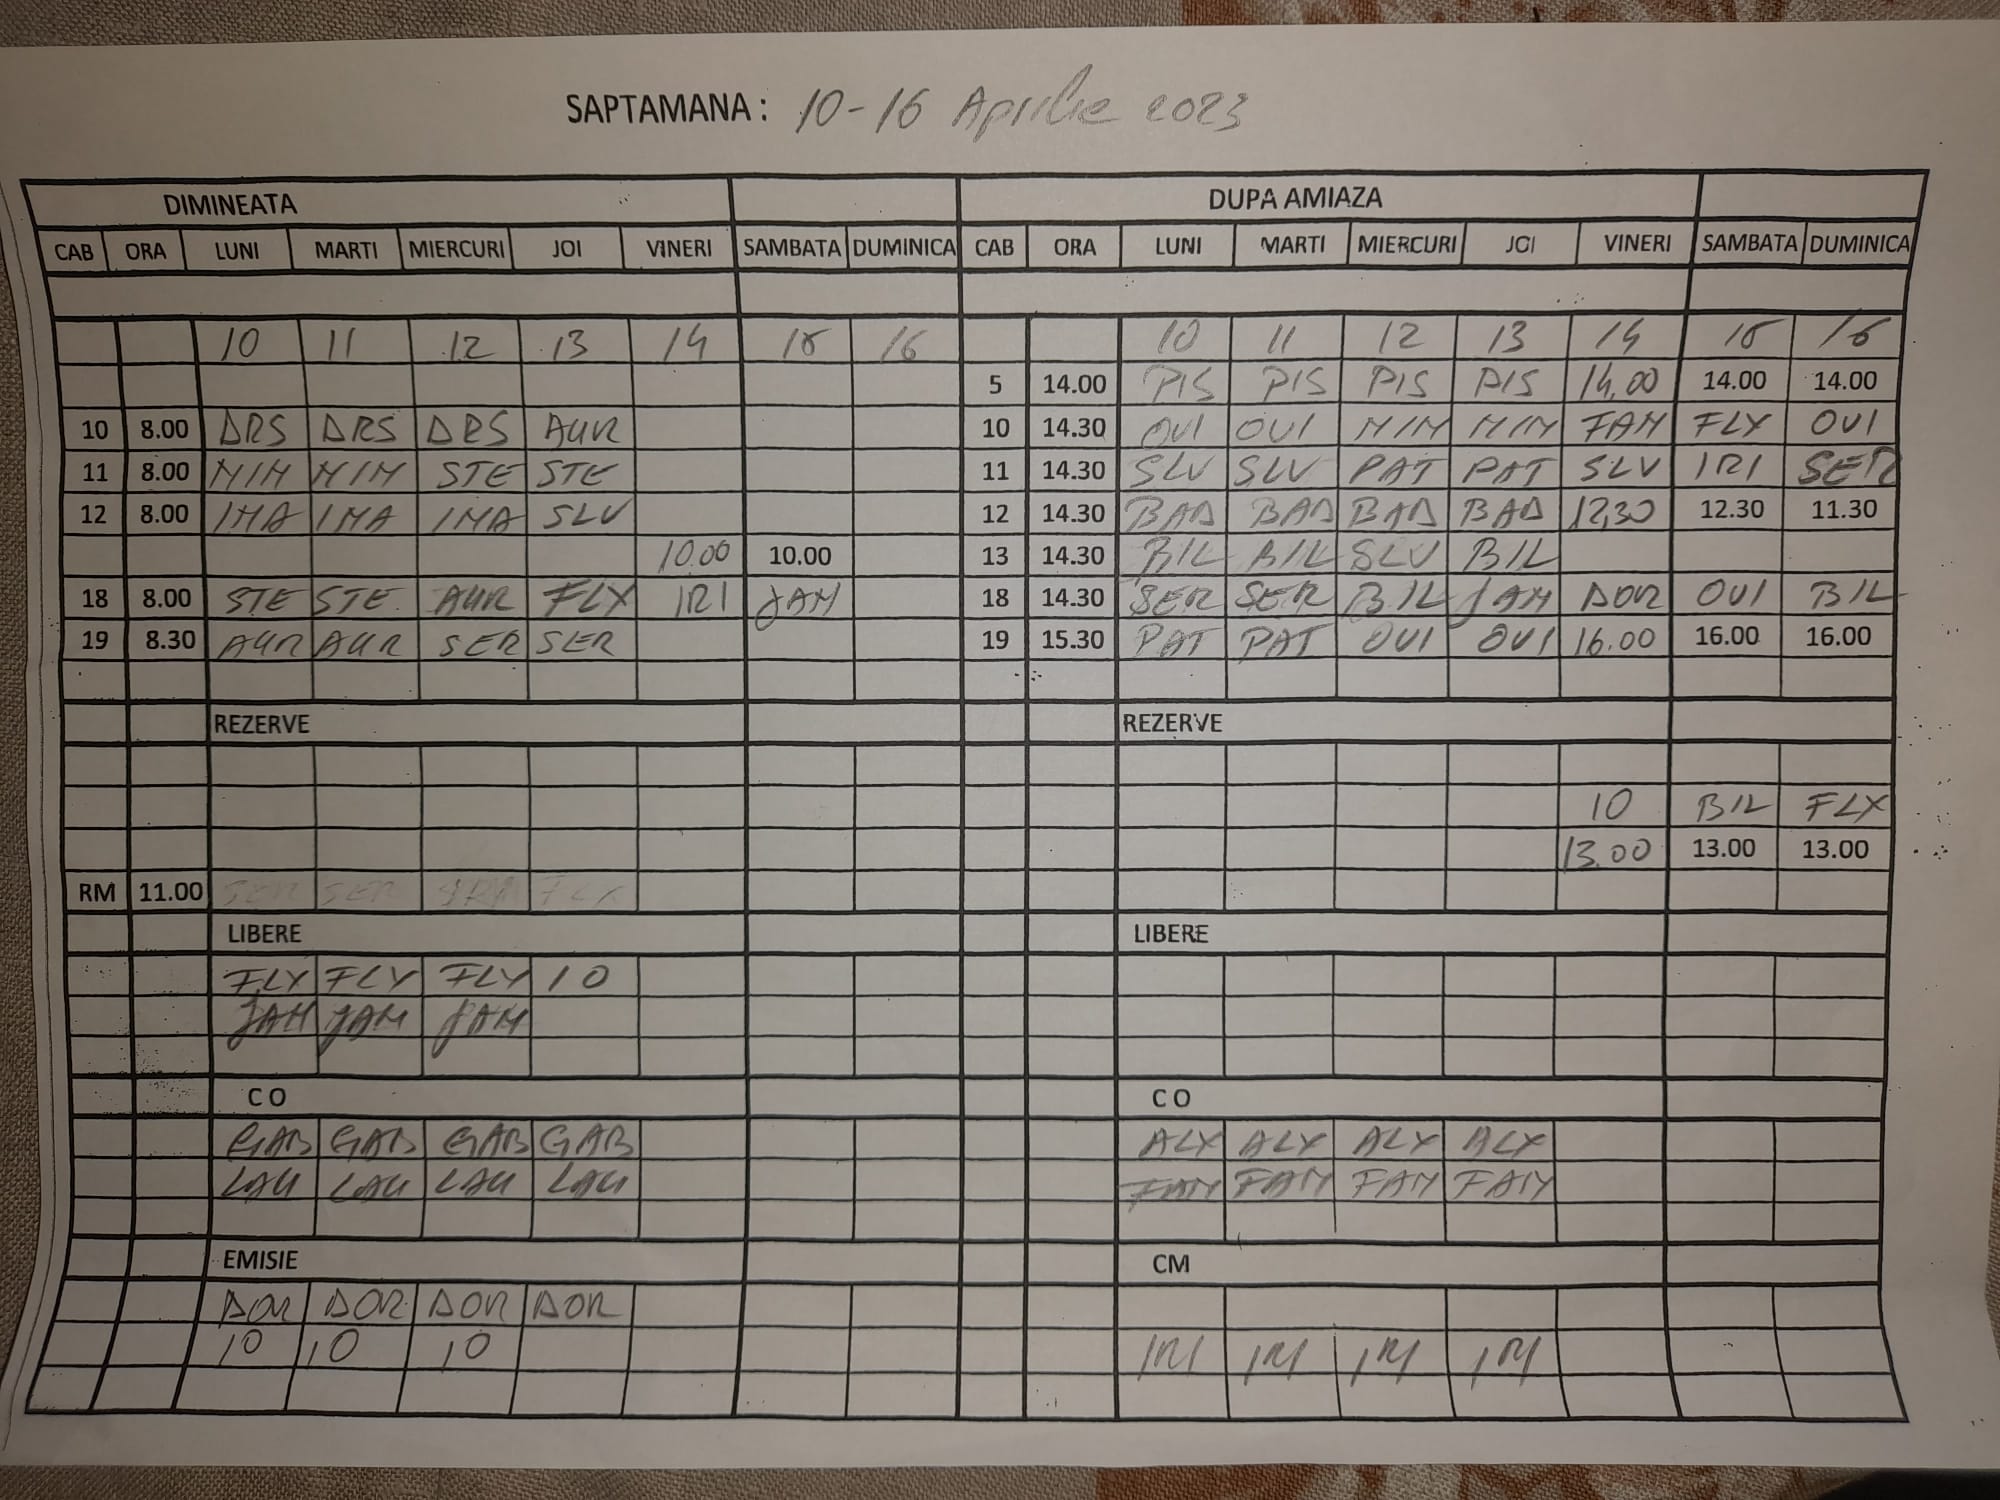 SAPTAMANA: 10-16 Aprilie 2023
DIMINEATA DUPA AMIAZA
CAB ORA LUNI MARTI MIERCURI JOI VINERI SAMBATA DUMINICA CAB ORA LUNI MARTI MIERCURI JOI VINERI SAMBATA DUMINICA
10 11 12 13 14 15 16 10 11 12 13 14 15 16
5 14.00 PIS PIS PIS PIS 14,00 14.00 14.00
10 8.00 DRS DRS DRS AUR 10 14.30 OVI OVI MIM MIM FAM FLX OVI
11 8.00 MIM MIM STE STE 11 14.30 SLV SLV PAT PAT SLV IRI SER
12 8.00 IMA IMA IMA SLV 12 14.30 BAD BAD BAD BAD 12,30 12.30 11.30
10.00 10.00 13 14.30 BIL BIL SLV BIL
18 8.00 STE STE AUR FLX IRI JAM 18 14.30 SER SER BIL JAM DOR OVI BIL
19 8.30 AUR AUR SER SER 19 15.30 PAT PAT OVI OVI 16.00 16.00 16.00
REZERVE REZERVE
10 BIL FLX
13.00 13.00 13.00
RM 11.00 SER FLX
LIBERE LIBERE
FLX FLX FLX 10
JAM JAM JAM
CO CO
GAB GAB GAB GAB ALX ALX ALX ALX
LAU LAU LAU LAU FAM FAM FAM FAM
EMISIE CM
DOR DOR DOR DOR
10 10 10 IRI IRI IRI IRI